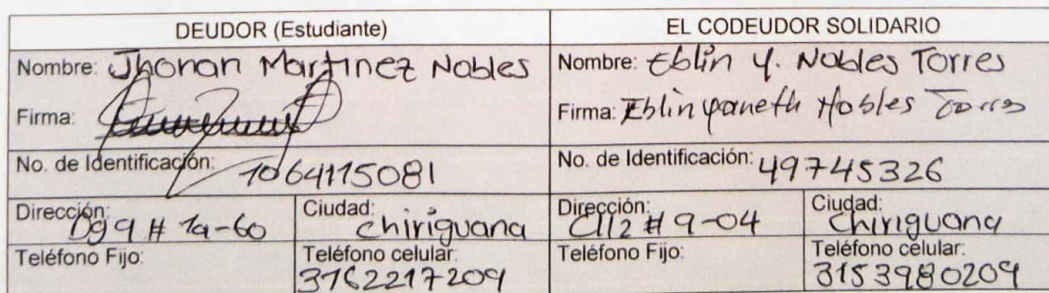 DEUDOR (Estudiante) EL CODEUDOR SOLIDARIO
Nombre: Jhonan Martinez Nobles Nombre: Eblin Y. Nobles Torres
Firma: Firma: Eblin yaneth Nobles Torres
No. de Identificación: 1064115081 No. de Identificación: 49745326
Dirección: Dg 9 # 1a-60 Ciudad: chiriguana Dirección: Cll2 # 9-04 Ciudad: chiriguana
Teléfono Fijo: Teléfono celular: 3162217209 Teléfono Fijo: Teléfono celular: 3153980209